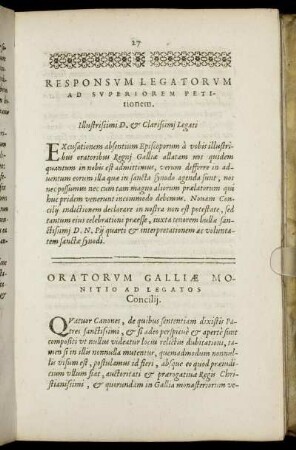 27
RESPONSVM LEGATORVM
AD SVPERIOREM PETI-
tionem.
Illustrissimi D. & Clarissimi Legati
EXcusationem absentium Episcoporum à vobis illustri-
bus oratoribus Regni Galliæ allatam nos quidem
quantum in nobis est admittimus, verum differre in ad-
uentum eorum illa quæ in sancta synodo agenda sunt, nos
nec possumus nec cum tam magna aliorum prælatorum qui
huc pridem venerunt incommodo debemus. Nouam Con-
cilij indictionem declarare in nostra non est potestate, sed
tantum eius celebrationi præesse, iuxta tenorem bullæ san-
ctissimi D. N. Pij quarti & interpretationem ac volunta-
tem sanctæ synodi.
ORATORVM GALLIÆ MO-
NITIO AD LEGATOS
Concilij.
QVatuor Canones, de quibus sententiam dixistis Pa-
tres sanctissimi, & si adeo perspicuè & apertè sunt
compositi vt nullus videatur locus relictus dubitationi, ta-
men si in illis nonnulla mutentur, quemadmodum nonnul-
lis visum est, postulamus id fieri, absque eo quod præiudi-
cium vllum fiat, auctoritati & prærogatiuæ Regis Chri-
stianissimi, & quorundam in Gallia monasteriorum ve-